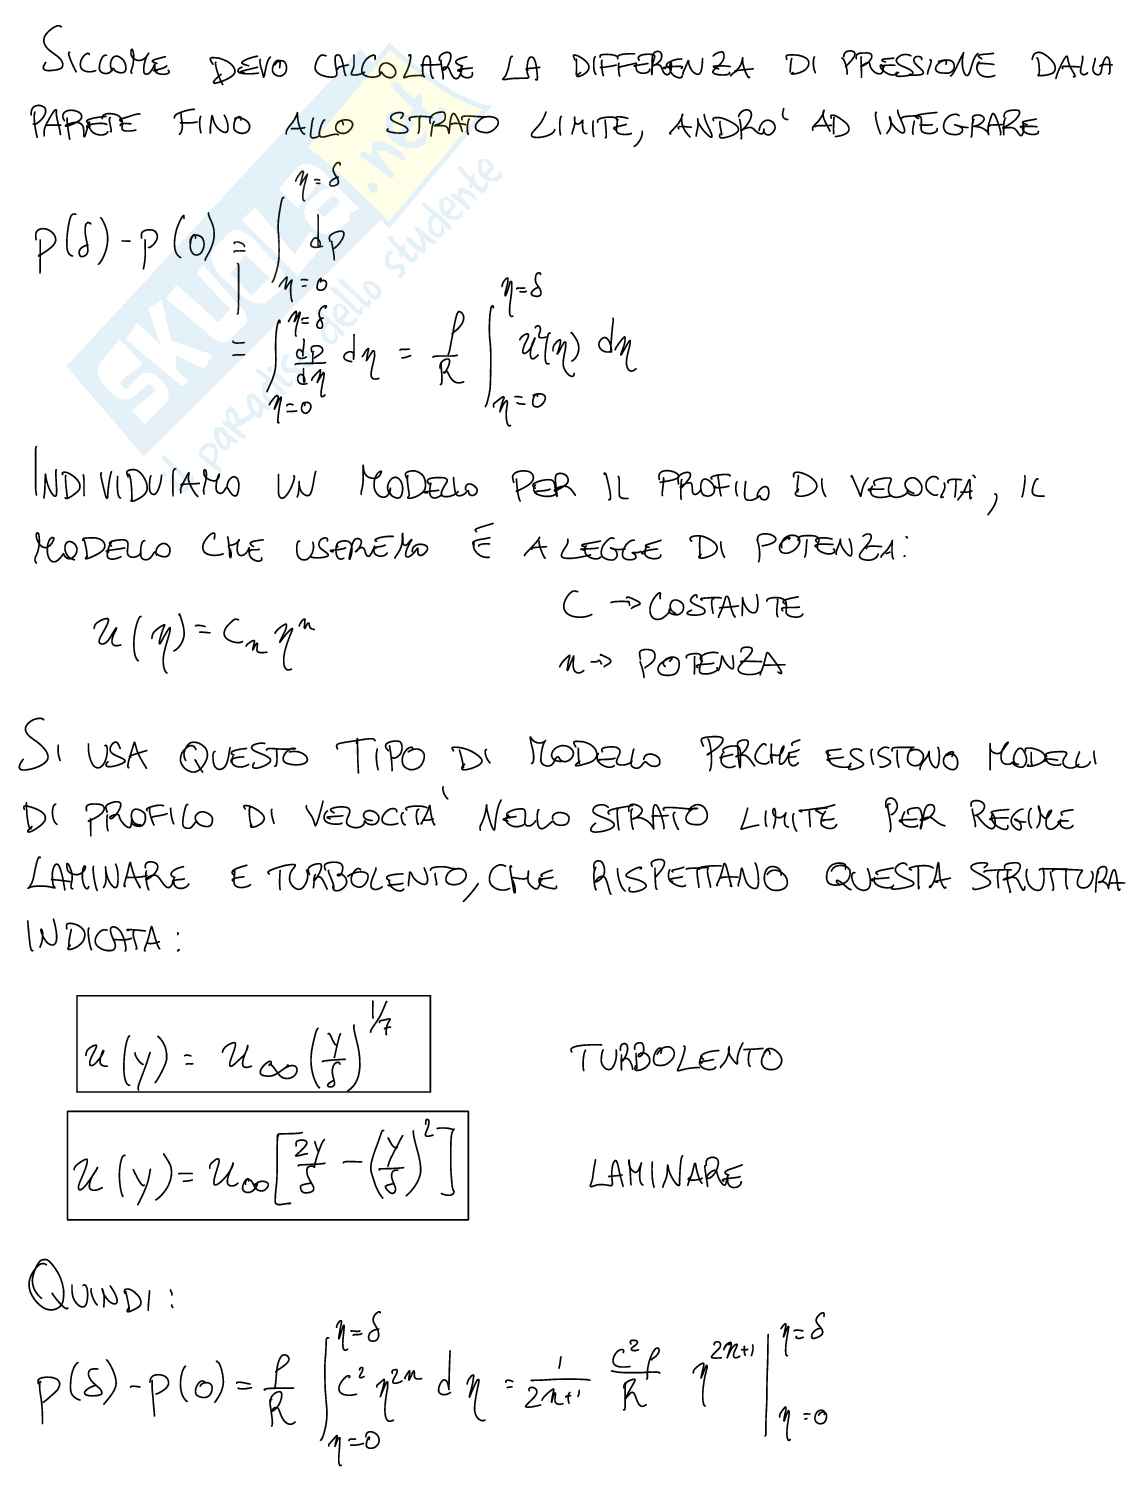 SICCOME DEVO CALCOLARE LA DIFFERENZA DI PRESSIONE DALLA
PARETE FINO ALLO STRATO LIMITE, ANDRO' AD INTEGRARE
p(δ)-p(0) = ∫_{η=0}^{η=δ} dp
= ∫_{η=0}^{η=δ} dp/dη dη = ρ/R ∫_{η=0}^{η=δ} u²(η) dη
INDIVIDUIAMO UN MODELLO PER IL PROFILO DI VELOCITÀ, IL
MODELLO CHE USEREMO É A LEGGE DI POTENZA:
C → COSTANTE
u(η) = C_n η^n
n → POTENZA
SI USA QUESTO TIPO DI MODELLO PERCHÉ ESISTONO MODELLI
DI PROFILO DI VELOCITA' NELLO STRATO LIMITE PER REGIME
LAMINARE E TURBOLENTO, CHE RISPETTANO QUESTA STRUTTURA
INDICATA:
u(y) = u_∞ (y/δ)^{1/7} TURBOLENTO
u(y) = u_∞ [2y/δ - (y/δ)²] LAMINARE
QUINDI:
p(δ)-p(0) = ρ/R ∫_{η=0}^{η=δ} C² η^{2n} dη = 1/(2n+1) C²ρ/R η^{2n+1} |_{η=0}^{η=δ}
SKUOLA.net
il paradiso dello studente